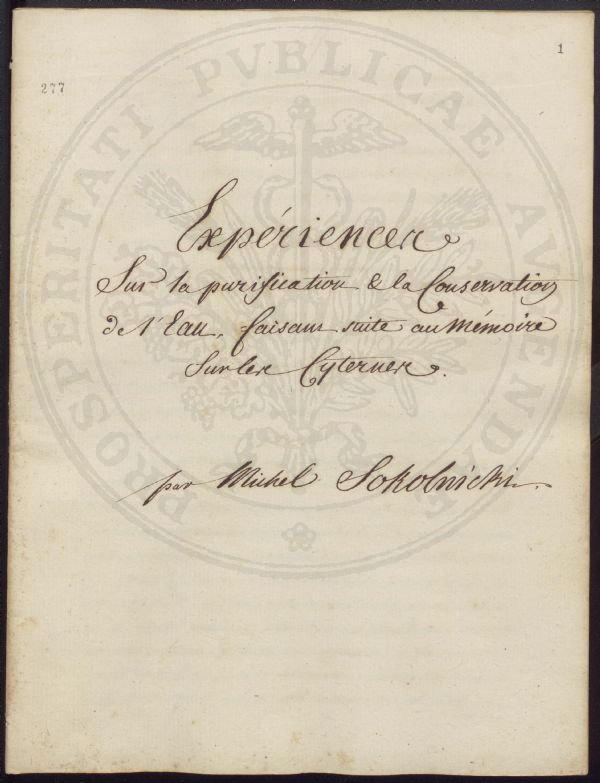 1
277
PROSPERITATI PVBLICAE AVGENDAE
Expériences
Sur la purification & la Conservation
de l'Eau, faisant suite au Mémoire
Sur les Cyternes.
par Michel Sokolnicki.